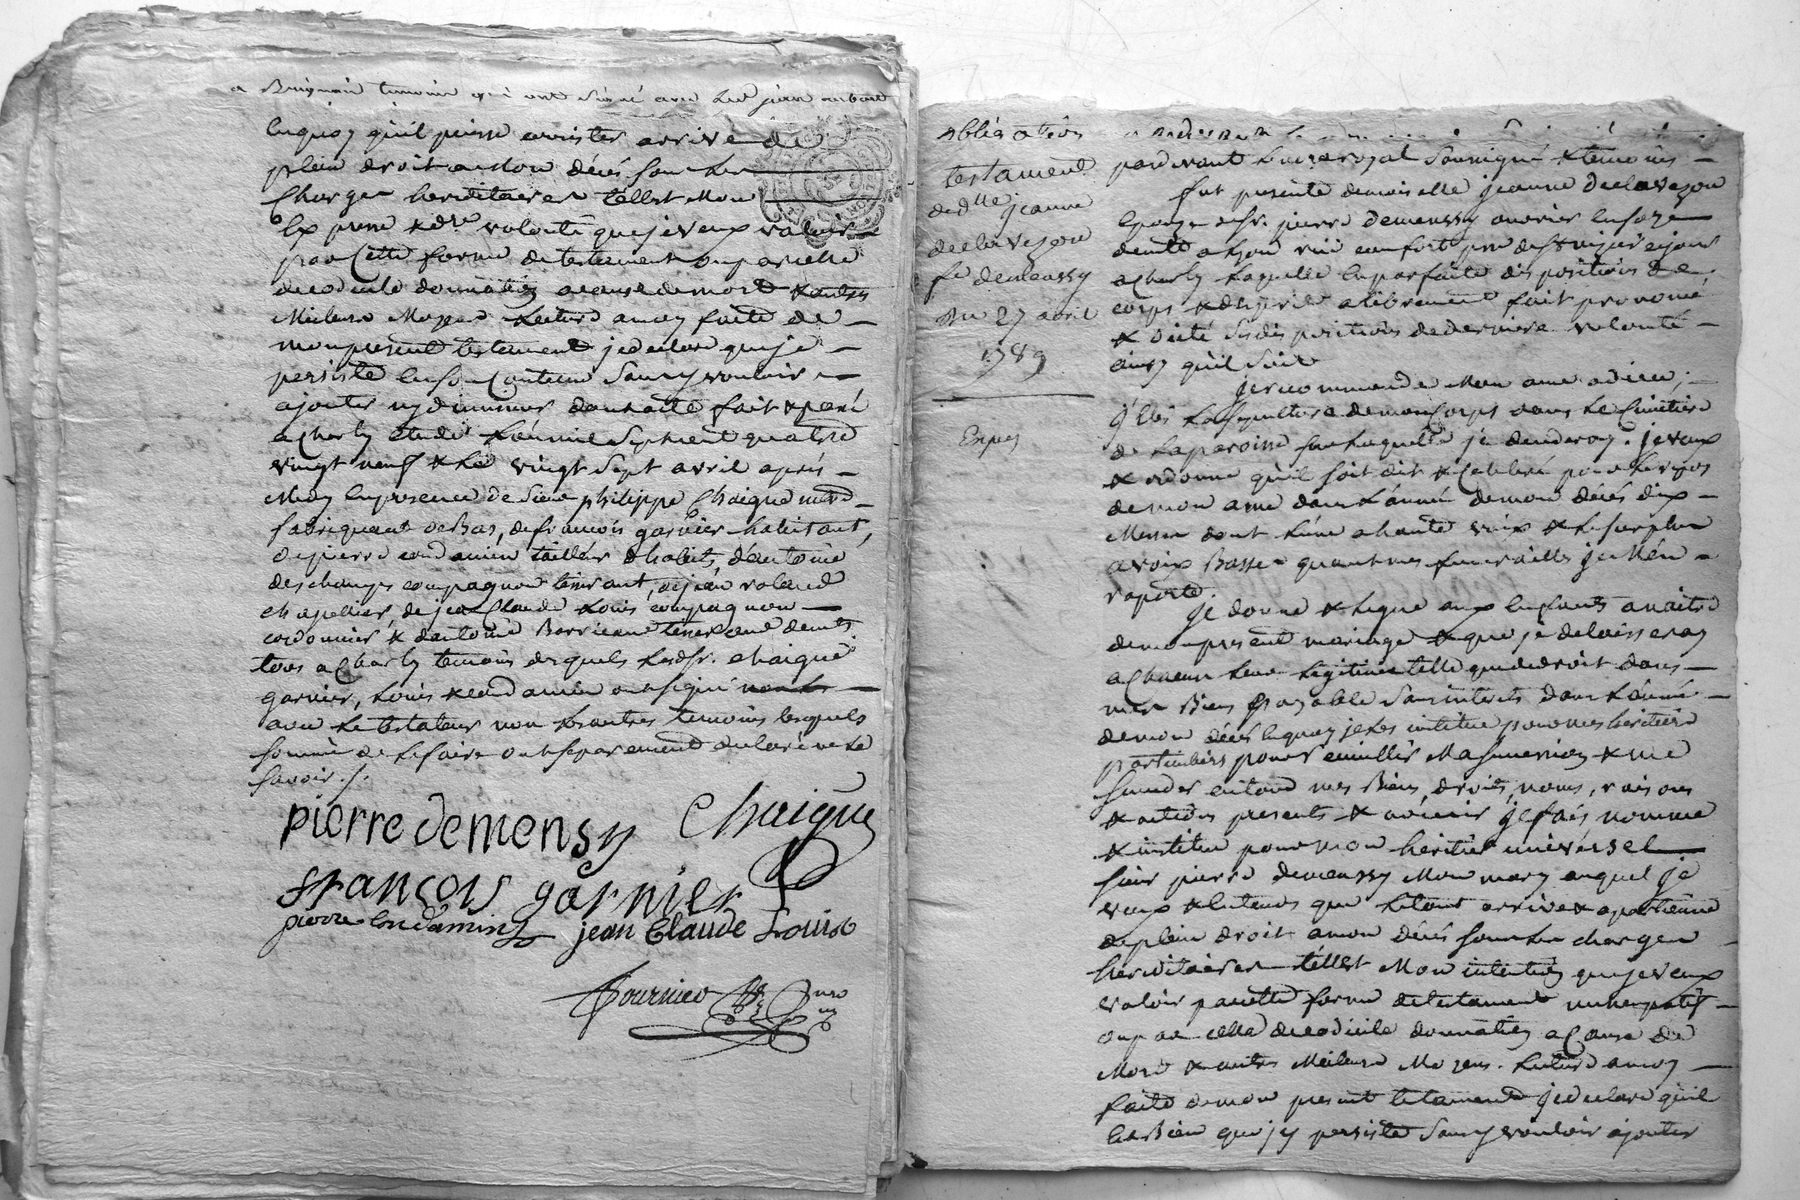 temoins qui ont signé avec
en quoy qu'il puisse consister arrive de
plein droit a mon décés sous les
charges hereditaires telle est mon
expresse & dre volonté que je veux valoir
par cette forme de testament ou par celle
de codicile donnation a cause de mort & autres
meilleurs moyens Lecture a moy faite de
mon present testament je declare que je
persiste en son contenu sans y vouloir
ajouter ny diminuer dont acte fait & passé
a Charly etude L'an mil sept cent quatre
vingt neuf & Le vingt sept avril aprés
Midy en presence de Sieur philippe Chaigne md
fabriquant de Bas, de francois garnier habitant,
de pierre condamin tailleur d'habits, d'antoine
deschamps compagnon tisserant, de jean roland
chapellier, de jean Claude Louis compagnon
cordonnier & d'antoine Barrieau tisserand demts
tous a Charly temoins desquels Lesd. sr. chaigne
garnier, Louis & condamin ont signé
avec Le testateur non Les autres temoins lesquels
sommé de Le faire ont separement declaré ne Le
savoir ./.
pierre demensy Chaigne
françois garnier
pierre Condamin jean Claude Louis
Fournier
obligation
testament
de dlle jeanne
delavezou
fe demeussy
Du 27 avril
1789
Exper
pardevant Le no. royal soussigné & temoins
fut presente demoiselle jeanne delavezou
Epouze de sr. pierre demeussy ouvrier en soye
demte a Lyon rue confort psse de st nizier ce jour
a Charly Laquelle en parfaite disposition de
corps & d'esprit a librement fait prononcé
& dicté ses dispositions de derniere volonté
ainsy qu'il suit
Je recommande Mon ame a dieu;
j'elis La sepulture de mon Corps dans Le Cimetiere
de La paroisse sur Laquelle je decederay. je veux
& ordonne qu'il soit dit & celebré pour Le repos
de mon ame dans L'année de mon décés dix
Messes dont L'une a haute voix & Le surplus
a voix Basse quant a mes funerailles je m'en
raporte.
Je donne & Legue aux enfants a naitre
de mon present mariage & que je delaisseray
a chacun Leur Legitime telle que de droit dans
mes Biens payable sans interets dans L'année
de mon décés en quoy je Les institue pour mes heritiers
particuliers pour cueillir Ma succession & me
succeder en tous mes Biens, droits, noms, raisons
& actions presents & avenir je fais nomme
& institue pour mon heritier universel
sieur pierre demeussy Mon mary auquel je
veux & entends que Le tout arrive & apartienne
de plein droit a mon décés sous Les charges
hereditaires telle est Mon intention que je veux
valoir par cette forme de testament nuncupatif
ou par celle de codicile donnation a Cause de
Mort & autres Meilleurs Moyens. Lecture a moy
faite de mon present testament je declare qu'il
est Bien que j'y persiste sans y vouloir ajouter